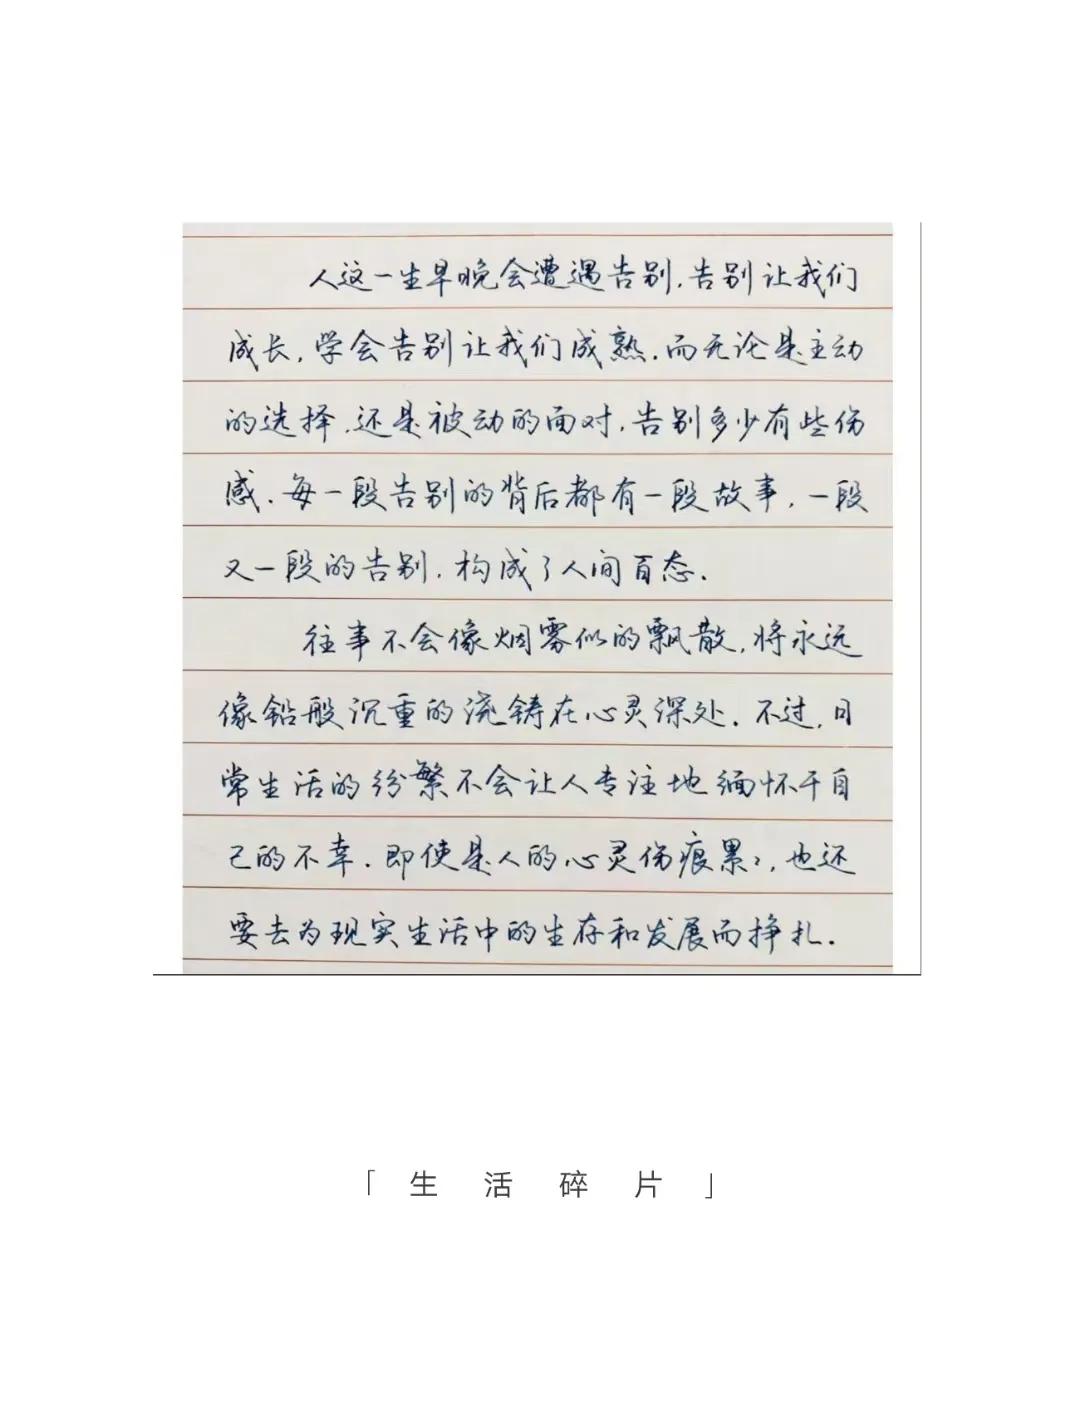 人这一生早晚会遭遇告别.告别让我们
成长,学会告别让我们成熟.而无论是主动
的选择,还是被动的面对,告别多少有些伤
感.每一段告别的背后都有一段故事,一段
又一段的告别,构成了人间百态.
往事不会像烟雾似的飘散,将永远
像铅般沉重的浇铸在心灵深处.不过,日
常生活的纷繁不会让人专注地缅怀于自
己的不幸.即使是人的心灵伤痕累々,也还
要去为现实生活中的生存和发展而挣扎.
「生活碎片」